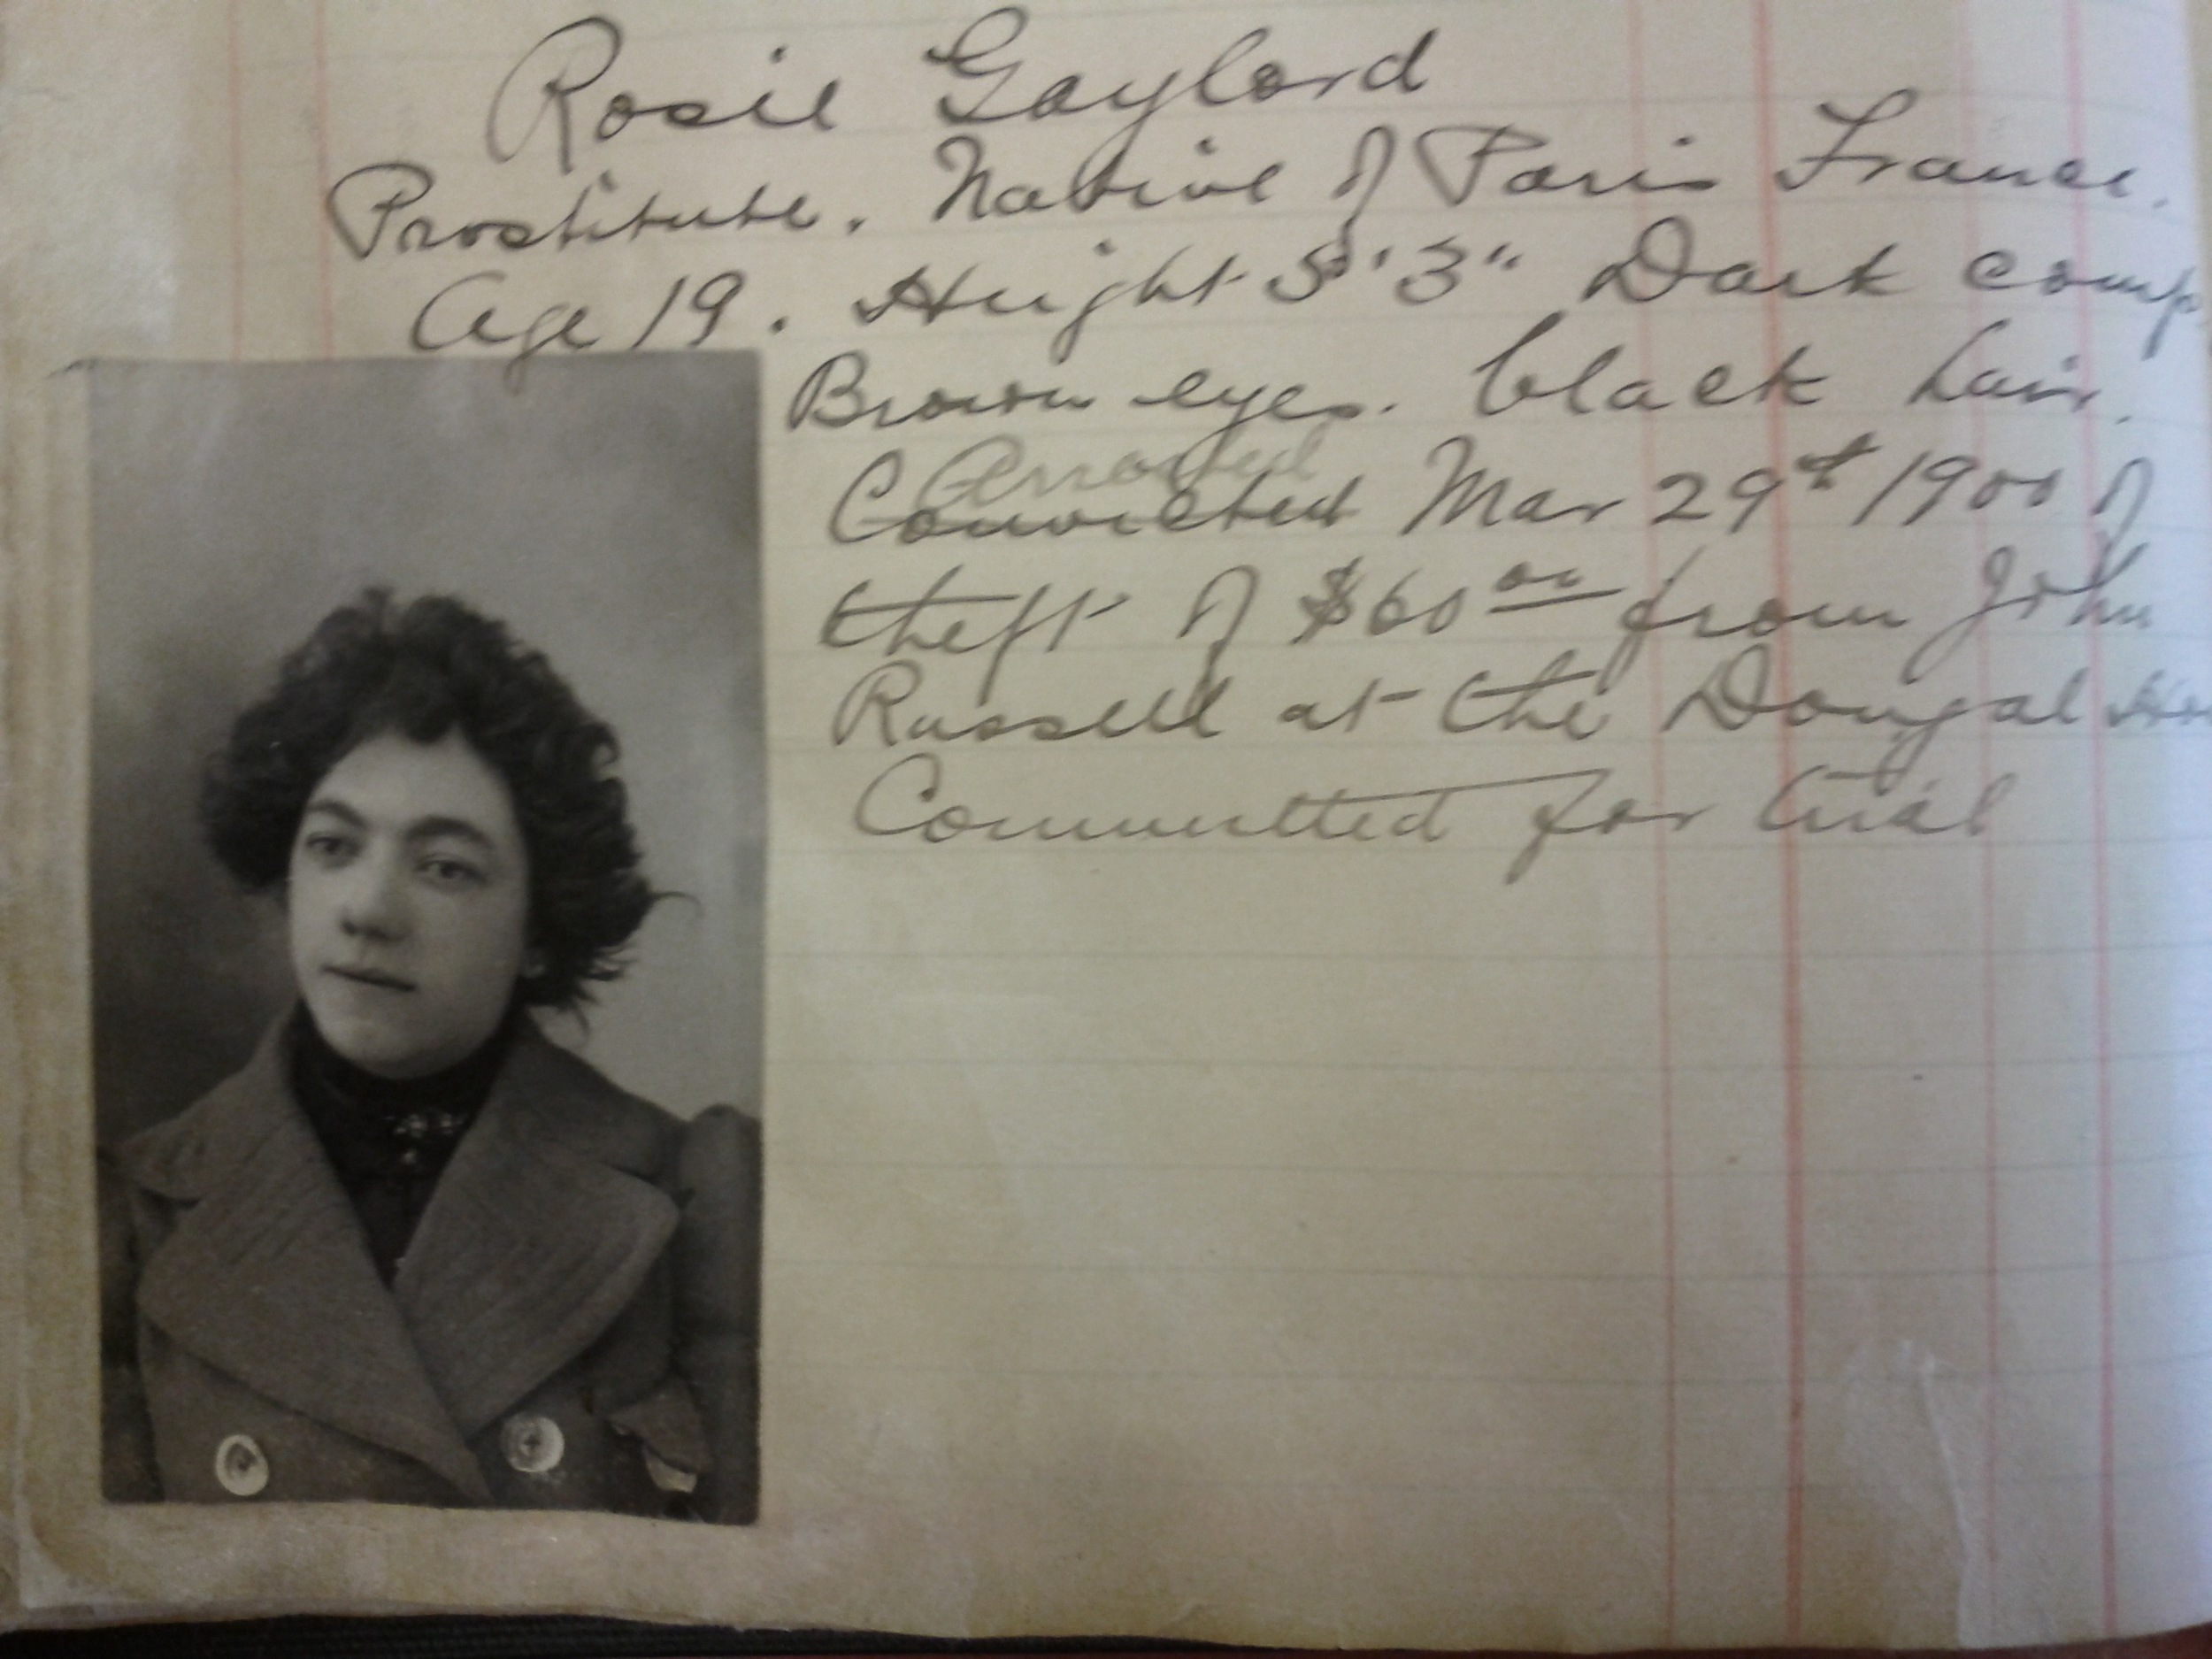 Rosie Gaylord
Prostitute. Native of Paris France.
Age 19. Height 5'3" Dark comp
Brown eyes. black hair.
Arrested
Convicted Mar 29th 1900 of
theft of $60.00 from John
Russell at the Dougal Ho
Committed for trial